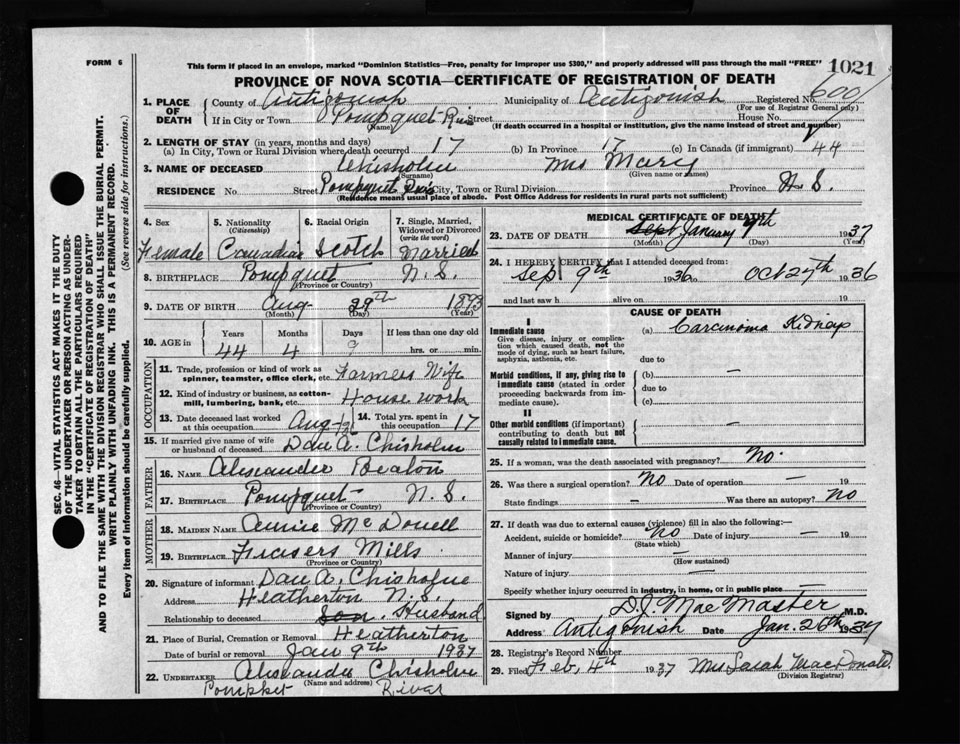 FORM 6
This form if placed in an envelope, marked "Dominion Statistics—Free, penalty for improper use $300," and properly addressed will pass through the mail "FREE"
1021
PROVINCE OF NOVA SCOTIA—CERTIFICATE OF REGISTRATION OF DEATH
600
1. PLACE OF DEATH County of Antigonish Municipality of Antigonish Registered No.
(For use of Registrar General only)
If in City or Town Pompquet Street House No.
(Name) (If death occurred in a hospital or institution, give the name instead of street and number)
2. LENGTH OF STAY (in years, months and days)
(a) In City, Town or Rural Division where death occurred 17 (b) In Province 17 (c) In Canada (if immigrant) 44
3. NAME OF DECEASED Chisholm Mrs Mary
(Surname) (Given name or names)
RESIDENCE No. Street Pompquet City, Town or Rural Division Province N. S.
(Residence means usual place of abode. Post Office Address for residents in rural parts not sufficient)
SEC. 46—VITAL STATISTICS ACT MAKES IT THE DUTY
OF THE UNDERTAKER OR PERSON ACTING AS UNDER-
TAKER TO OBTAIN ALL THE PARTICULARS REQUIRED
IN THE "CERTIFICATE OF REGISTRATION OF DEATH"
AND TO FILE THE SAME WITH THE DIVISION REGISTRAR WHO SHALL ISSUE THE BURIAL PERMIT.
WRITE PLAINLY WITH UNFADING INK. THIS IS A PERMANENT RECORD.
Every item of Information should be carefully supplied. (See reverse side for instructions.)
4. Sex 5. Nationality (Citizenship) 6. Racial Origin 7. Single, Married, Widowed or Divorced (write the word)
Female Canadian Scotch Married
8. BIRTHPLACE Pompquet N. S.
(Province or Country)
9. DATE OF BIRTH Aug 29th 1893
(Month) (Day) (Year)
10. AGE in Years Months Days If less than one day old
44 4 9 hrs. or min.
OCCUPATION
11. Trade, profession or kind of work as
spinner, teamster, office clerk, etc. Farmers Wife
12. Kind of industry or business, as cotton-
mill, lumbering, bank, etc. House work
13. Date deceased last worked at this occupation Aug 14. Total yrs. spent in this occupation 17
15. If married give name of wife
or husband of deceased Dan A. Chisholm
FATHER
16. NAME Alexander Beaton
17. BIRTHPLACE Pompquet N. S.
(Province or Country)
MOTHER
18. MAIDEN NAME Annie McDonell
19. BIRTHPLACE Frasers Mills
(Province or Country)
20. Signature of informant Dan A. Chisholm
Address Heatherton N. S.
Relationship to deceased Son Husband
21. Place of Burial, Cremation or Removal Heatherton
Date of burial or removal Jan 9th 1937
22. UNDERTAKER Alexander Chisholm
(Name and address)
Pompket River
MEDICAL CERTIFICATE OF DEATH
23. DATE OF DEATH Sept January 9th 1937
(Month) (Day) (Year)
24. I HEREBY CERTIFY that I attended deceased from:
Sep 9th 1936 to Oct 27th 1936
and last saw h alive on 19
CAUSE OF DEATH
I
Immediate cause (a) Carcinoma Kidney
Give disease, injury or complica-
tion which caused death, not the
mode of dying, such as heart failure,
asphyxia, asthenia, etc. due to
Morbid conditions, if any, giving rise to (b) —
immediate cause (stated in order due to
proceeding backwards from
immediate cause). (c)
II
Other morbid conditions (if important) —
contributing to death but not
causally related to immediate cause.
25. If a woman, was the death associated with pregnancy? No.
26. Was there a surgical operation? No Date of operation — 19
State findings — Was there an autopsy? No
27. If death was due to external causes (violence) fill in also the following:—
Accident, suicide or homicide? No Date of injury — 19
(State which)
Manner of injury —
(How sustained)
Nature of injury —
Specify whether injury occurred in industry, in home, or in public place —
Signed by D.J. MacMaster M.D.
Address Antigonish Date Jan. 26th 1937
28. Registrar's Record Number
29. Filed Feb. 4th 1937 Mrs Sarah MacDonald
(Division Registrar)